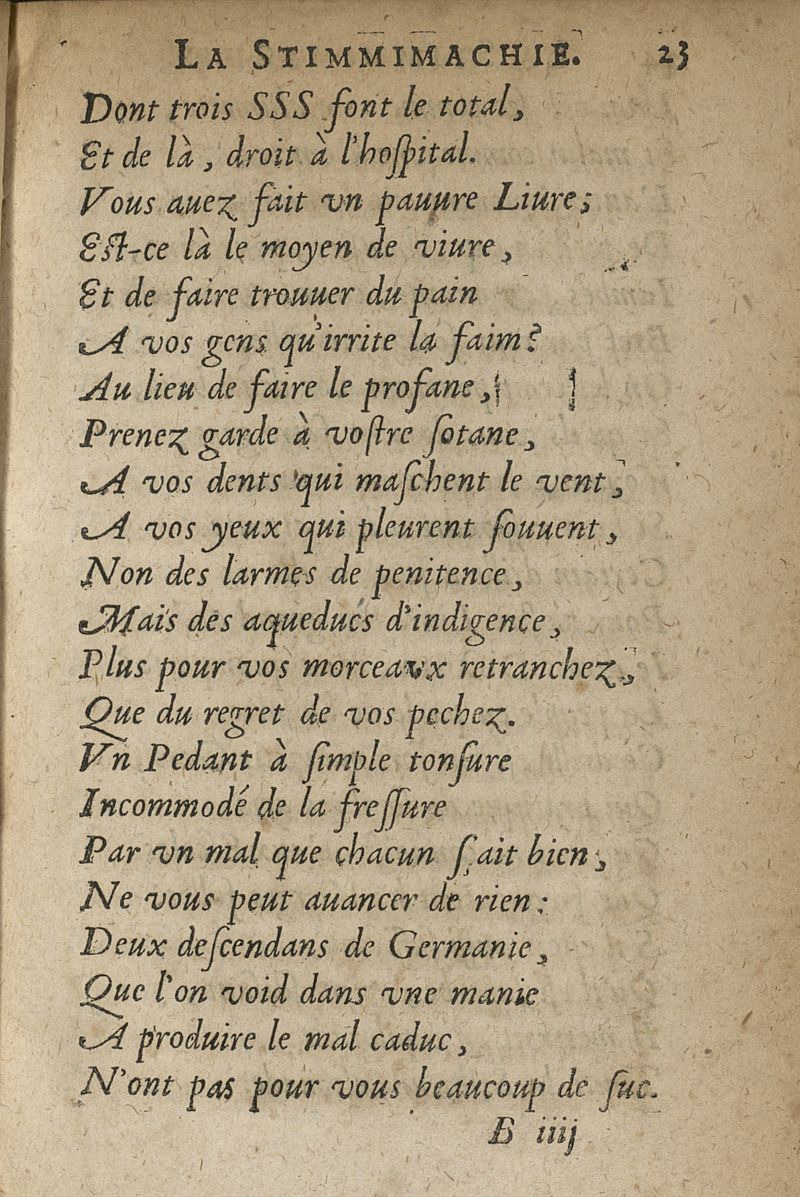 LA STIMMIMACHIE. 23
Dont trois SSS font le total,
Et de là, droit à l'hoſpital.
Vous auez fait vn pauure Liure;
Eſt-ce là le moyen de viure,
Et de faire trouuer du pain
A vos gens qu'irrite la faim?
Au lieu de faire le profane,
Prenez garde à voſtre ſotane,
A vos dents qui maſchent le vent,
A vos yeux qui pleurent ſouuent,
Non des larmes de penitence,
Mais des aqueducs d'indigence,
Plus pour vos morceaux retranchez,
Que du regret de vos pechez.
Vn Pedant à ſimple tonſure
Incommodé de la freſſure
Par vn mal que chacun ſçait bien,
Ne vous peut auancer de rien:
Deux deſcendans de Germanie,
Que l'on void dans vne manie
A produire le mal caduc,
N'ont pas pour vous beaucoup de ſuc.
B iiij